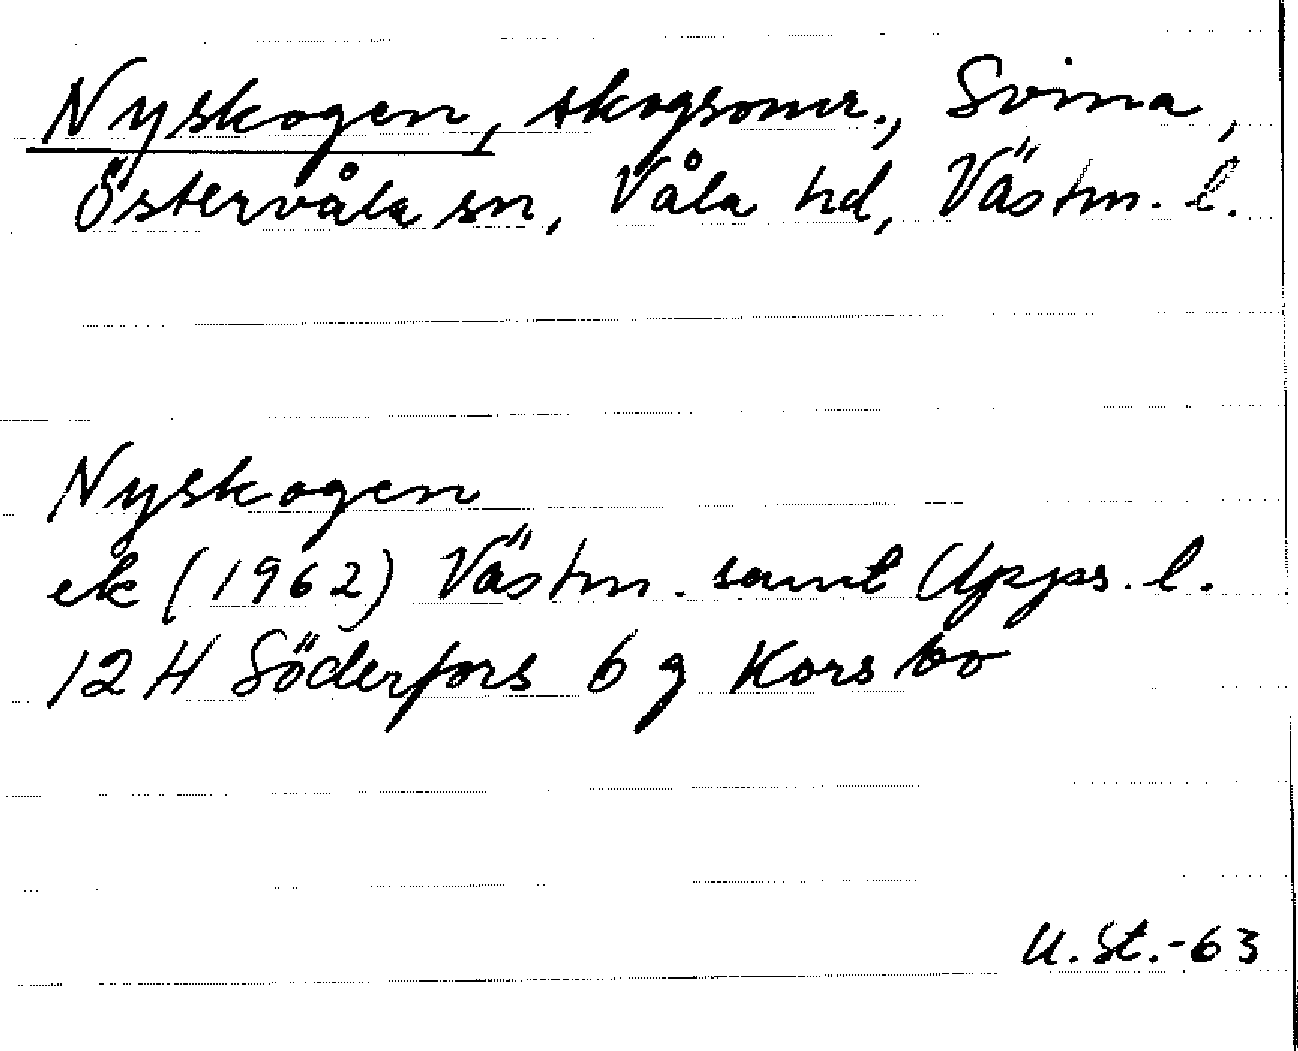 Nyskogen, skogsomr., Svina,
Östervåla sn, Våla hd, Västm. l.
Nyskogen
ek (1962) Västm. samt Upps. l.
12 H Söderfors 6 g Korsbo
U. St. -63